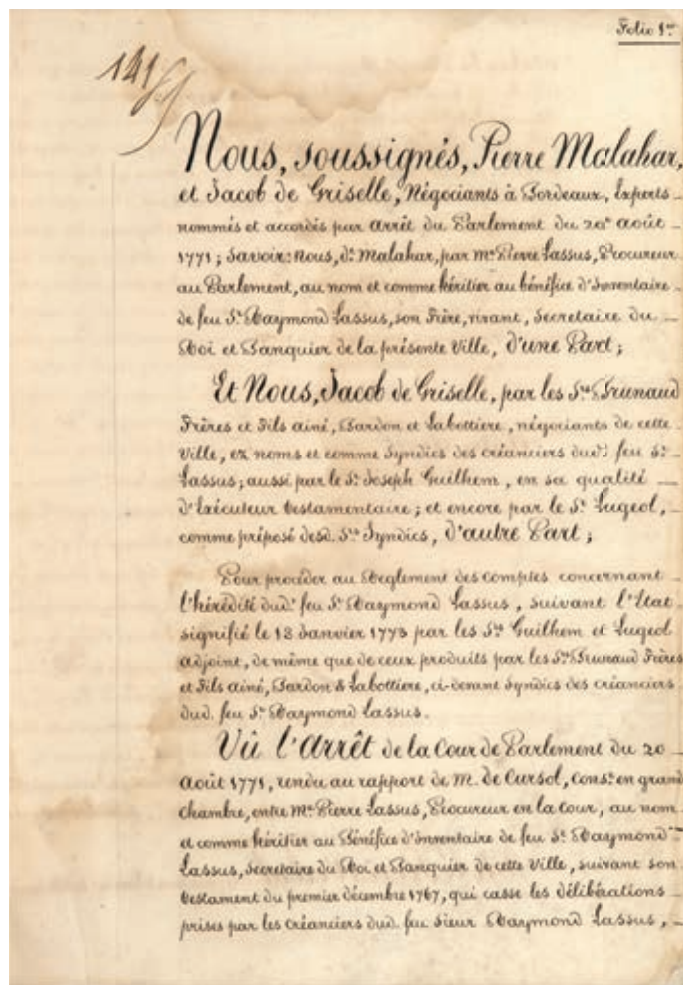 Folio 1er
141
Nous, soussignés, Pierre Malahar,
et Jacob de Griselle, Négociants à Bordeaux, Experts
nommés et accordés par Arrêt du Parlement du 20e Août
1771; Savoir: Nous, d. Malahar, par me Pierre Lassus, Procureur
au Parlement, au nom et comme héritier au bénéfice d'Inventaire
de feu Sr Raymond Lassus, son Frère, vivant, Secretaire du
Roi et Banquier de la présente Ville, d'une Part;
Et Nous, Jacob de Griselle, par les Srs Brunaud
Frères et Fils ainé, Bardon et Labottiere, négociants de cette
Ville, ez noms et comme Syndics des créanciers dud. feu Sr
Lassus; aussi par le Sr Joseph Guilhem, en sa qualité
d'Exécuteur testamentaire; et encore par le Sr Lugeol,
comme préposé desd. Srs Syndics, d'autre Part;
Pour procéder au Reglement des comptes concernant
l'hérédité dud. feu Sr Raymond Lassus, suivant l'Etat
signifié le 18 Janvier 1773 par les Srs Guilhem et Lugeol
adjoint, de même que de ceux produits par les Srs Brunaud Frères
et Fils ainé, Bardon & Labottiere, ci-devant Syndics des créanciers
dud. feu Sr Raymond Lassus.
Vû l'Arrêt de la Cour de Parlement du 20
Août 1771, rendu au rapport de M. de Cursol, Conser en grand
Chambre, entre Me Pierre Lassus, Procureur en la Cour, au nom
et comme héritier au Bénéfice d'Inventaire de feu Sr Raymond
Lassus, Secretaire du Roi et Banquier de cette Ville, suivant son
testament du premier décembre 1767, qui casse les délibérations
prises par les Créanciers dud. feu Sieur Raymond Lassus,